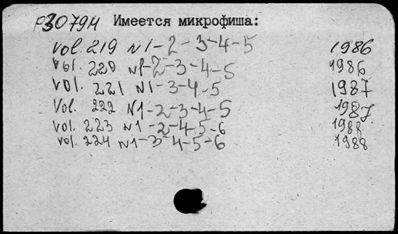 P30794 Имеется микрофиша:
vol. 219 N1-2-3-4-5 1986
vol. 220 N1-2-3-4-5 1986
vol. 221 N1-3-4-5 1987
vol. 222 N1-2-3-4-5 1987
vol. 223 N1-2-4-5-6 1988
vol. 224 N1-3-4-5-6 1988